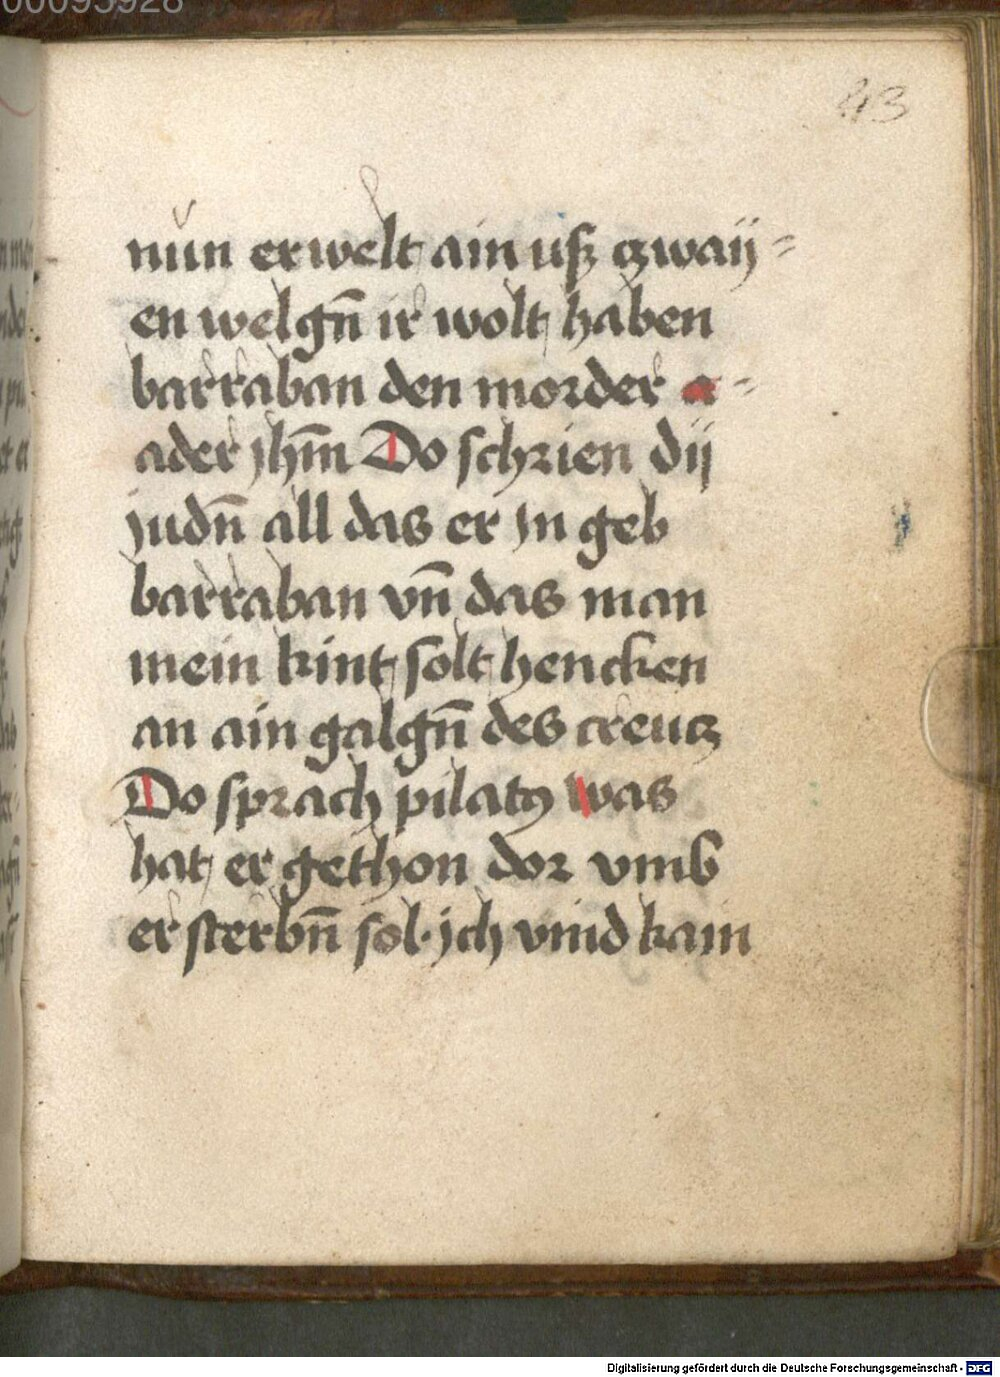 00095928
43
nun erwelt ain uß zwaÿ=
en welgn̄ ir wolt haben
barraban den morder a=
ader jhm̄ Do schrien dij
judn̄ all das er jn geb
barraban vn̄ das man
mein kint solt hencken
an ain galgn̄ des creucz
Do sprach pilatꝯ was
hat er gethon dor vmb
er sterbn̄ sol· jch vind kain
Digitalisierung gefördert durch die Deutsche Forschungsgemeinschaft - DFG